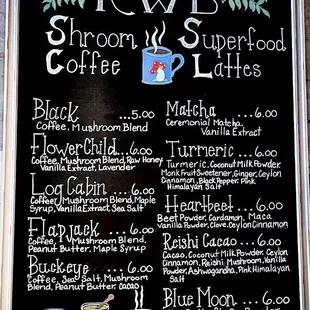 Shroom Coffee
Superfood Lattes
Black ...5.00
Coffee, Mushroom Blend
Flower Child ...6.00
Coffee, Mushroom Blend, Raw Honey
Vanilla Extract, Lavender
Log Cabin ... 6.00
Coffee, Mushroom Blend, Maple
Syrup, Vanilla Extract, Sea Salt
Flapjack ... 6.00
Coffee, Mushroom Blend,
Peanut Butter, Maple Syrup
Buckeye ... 6.00
Coffee, Sea Salt, Mushroom
Blend, Peanut Butter, Cacao
Matcha ... 6.00
Ceremonial Matcha,
Vanilla Extract
Turmeric .... 6.00
Turmeric, Coconut Milk Powder,
Monk Fruit Sweetener, Ginger, Ceylon
Cinnamon, Black Pepper, Pink
Himalayan Salt
Heartbeet ... 6.00
Beet Powder, Cardamon, Maca
Vanilla Powder, Clove, Ceylon Cinnamon
Reishi Cacao ... 6.00
Cacao, Coconut Milk Powder, Ceylon
Cinnamon, Reishi Mushroom, Vanilla
Powder, Ashwagandha, Pink Himalayan
Salt
Blue Moon ... 6.00